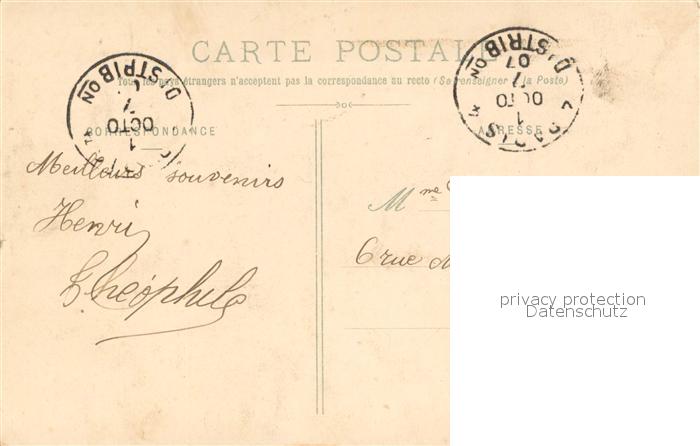 CARTE POSTALE
Tous les pays étrangers n'acceptent pas la correspondance au recto (Se renseigner à la Poste)
CORRESPONDANCE
ADRESSE
DISTRIBON
OCTO
1
DISTRIBON
07
OCTO
1
PARIS
Meilleurs souvenirs
Henri
Théophile
Mme
6 rue
privacy protection
Datenschutz